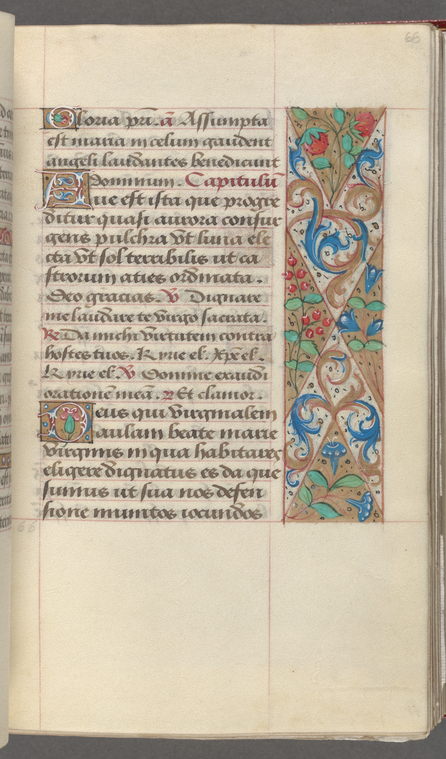 66
Gloria pri. a Assumpta
est maria in celum gaudent
angeli laudantes benedicunt
dominum. Capitulū
Que est ista que progre
ditur quasi aurora consur
gens pulchra vt luna ele
cta vt sol terribilis ut ca
strorum acies ordinata.
Deo gracias. V Dignare
me laudare te virgo sacrata.
R Da michi virtutem contra
hostes tuos. Kyrie el. Xpe el.
Kyrie el. V Domine exaudi
orationē meā. R Et clamor.
Deus qui virginalem
aulam beate marie
virginis in qua habitares
eligere dignatus es da que
sumus ut sua nos defen
sione munitos iocundos
66